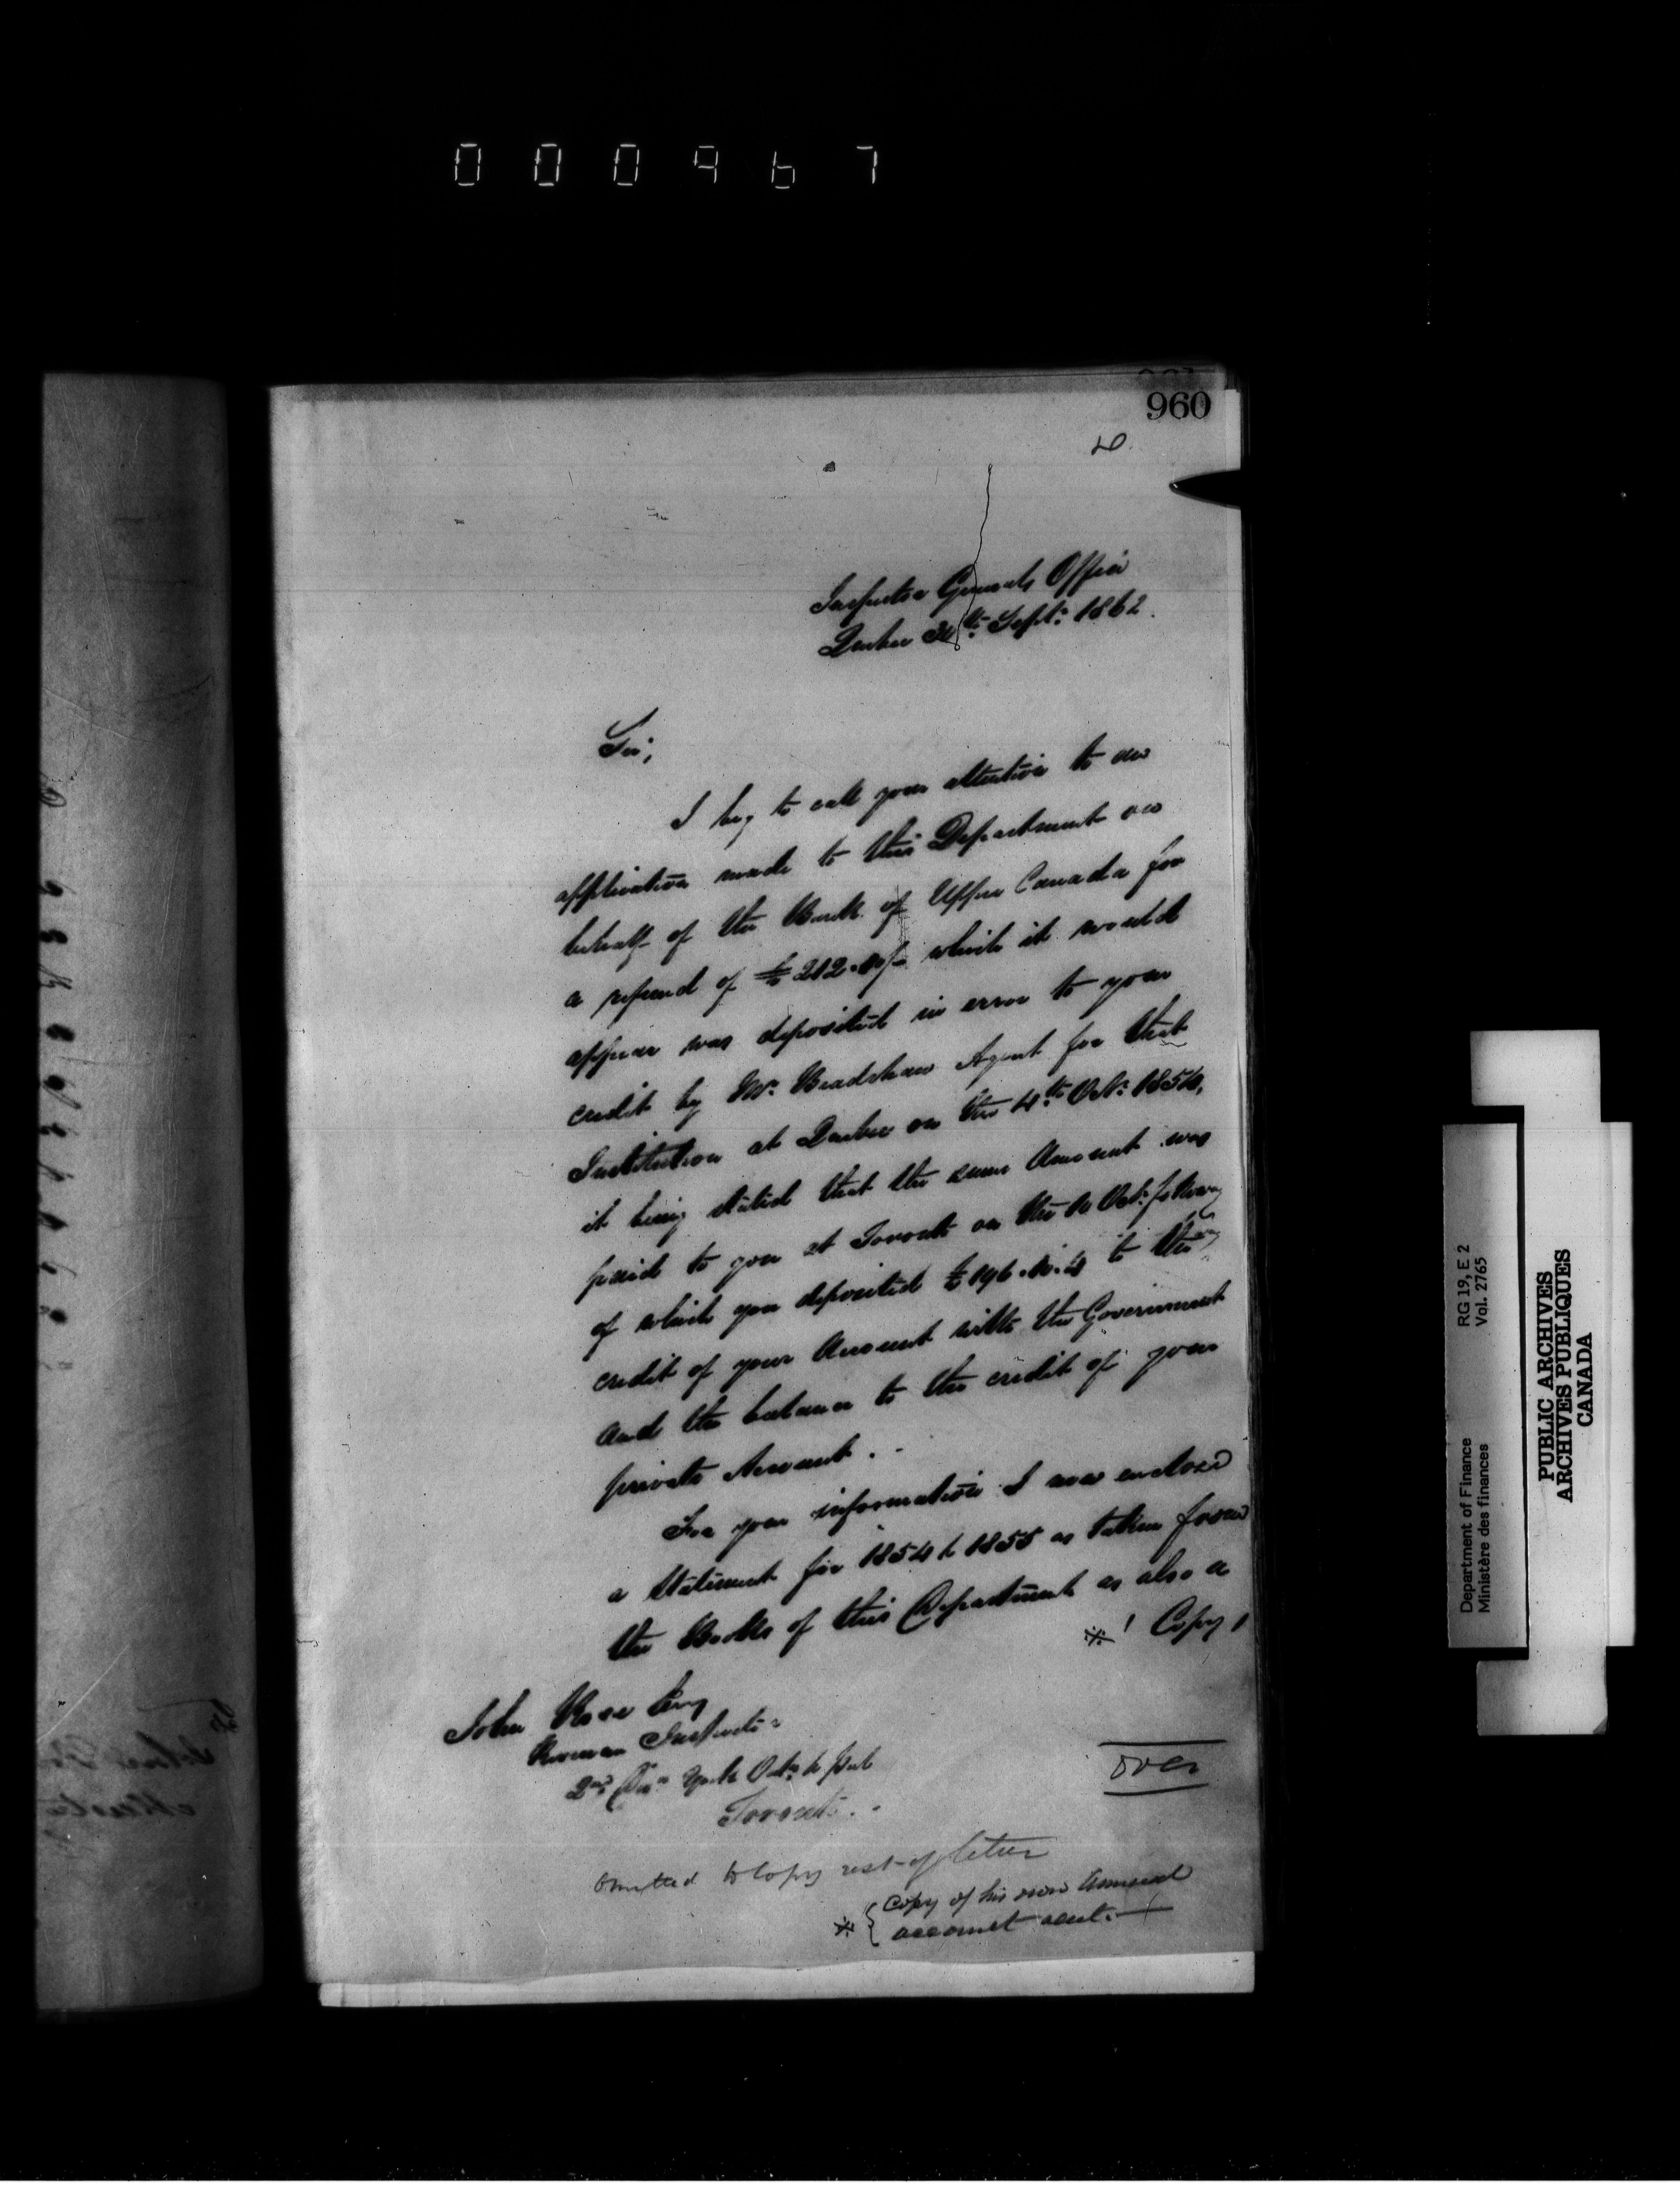 000967
960
Inspector Generals Office
Quebec Septr 1862.
Sir,
I beg to call your attention to an
application made to this Department on
behalf of the Bank of Upper Canada for
a refund of £212.10/- which it would
appear was deposited in error to your
credit by Mr. Bradshaw Agent for that
Institution at Quebec on the 4th Octr 1854,
it being stated that the same Amount was
paid to you at Toronto on the 10 Octr following
of which you deposited £196.10.4 to the
credit of your Account with the Government
and the balance to the credit of your
private Account.
For your information I now enclose
a Statement for 1854 & 1855 as taken from
the Books of this Department as also a
※ Copy
John Rose Esq
Revenue Inspector
2nd York &
Toronto
over
omitted to copy rest of letter
※ { Copy of his own Annual
account sent.
Department of Finance RG 19, E 2
Ministère des finances Vol. 2765
PUBLIC ARCHIVES
ARCHIVES PUBLIQUES
CANADA